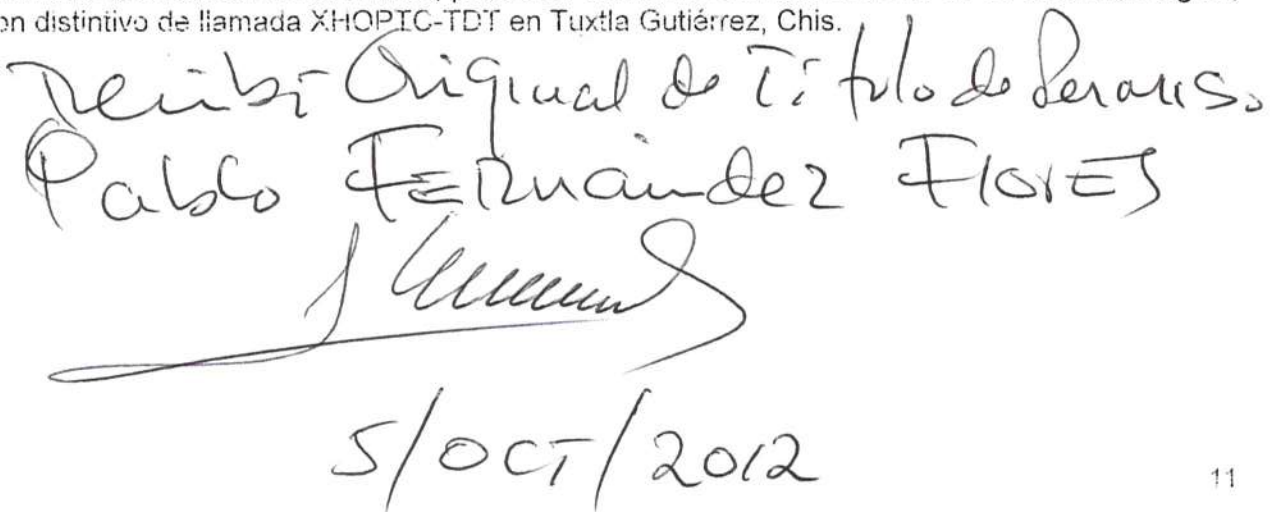 on distintivo de llamada XHOPTC-TDT en Tuxtla Gutiérrez, Chis.
Recibí Original de Título de Permiso.
Pablo FERNández FlorES
5/OCT/2012
11